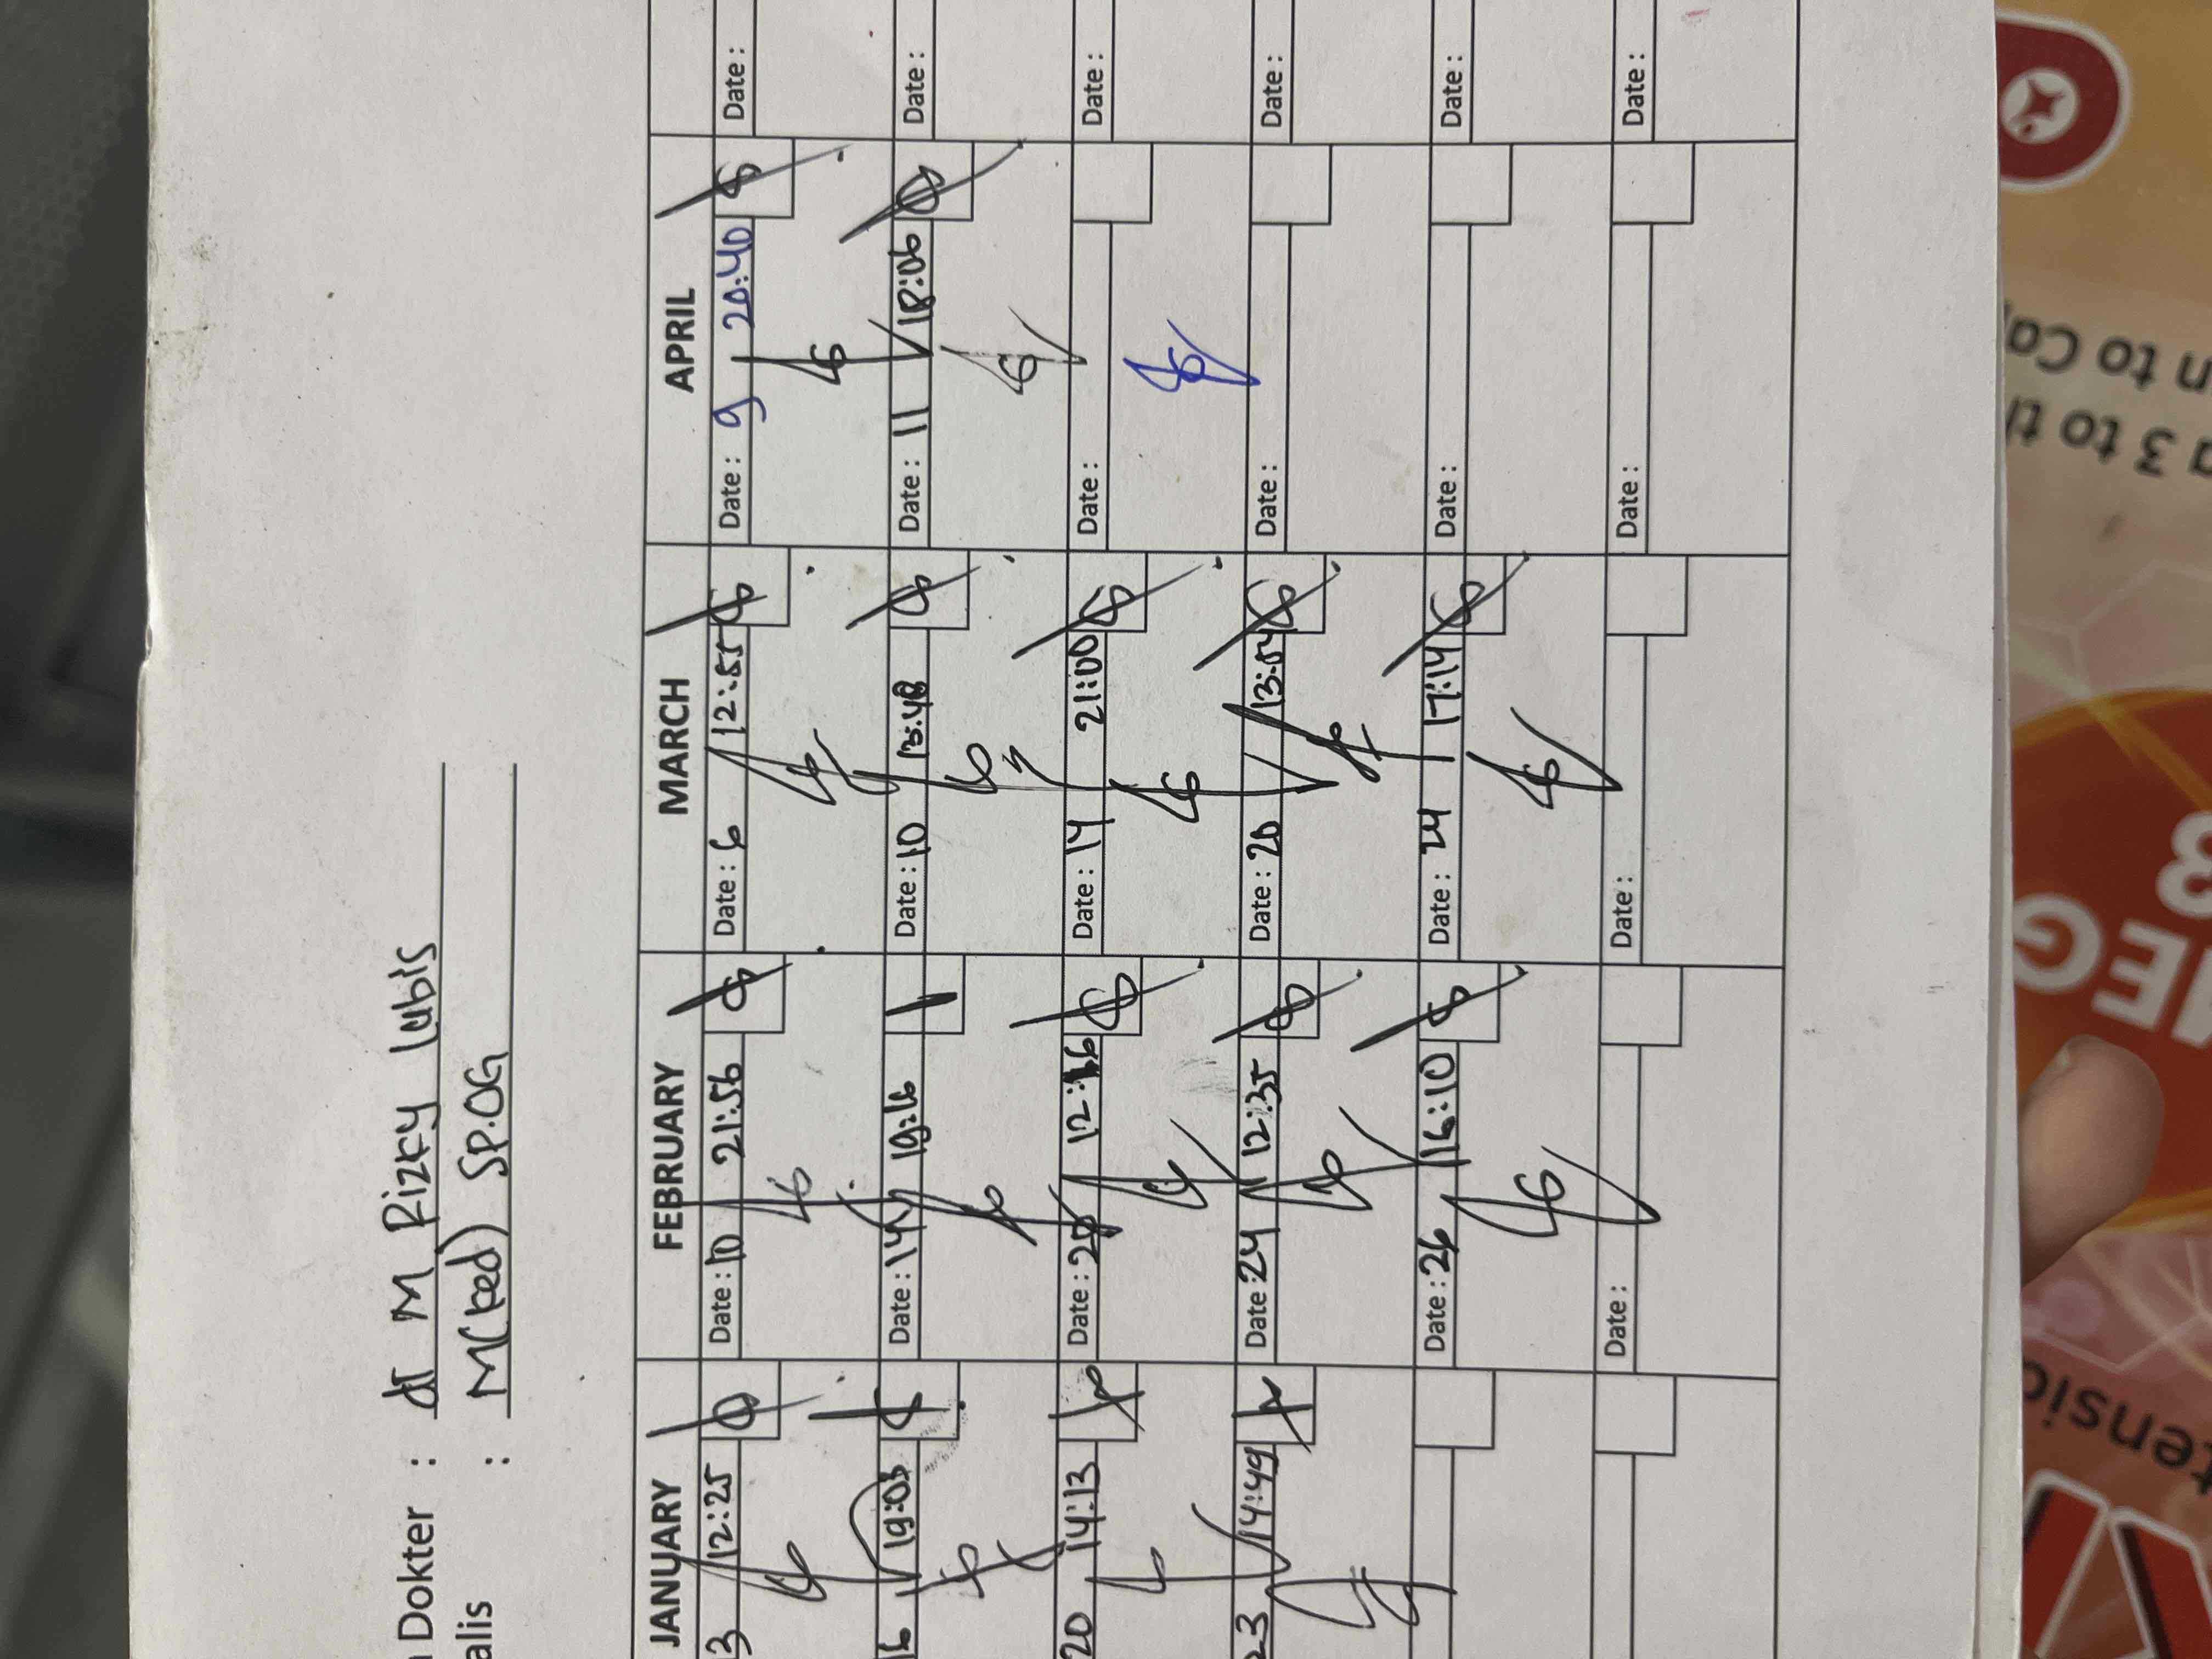 Dokter : dr M Rizky Lubis
alis : M(ked) SP.OG
JANUARY FEBRUARY MARCH APRIL
3 12:25 Date : 10 21:56 Date : 6 12:55 Date : 9 20:40 Date :
16 19:03 Date : 14 19:16 Date : 10 13:48 Date : 11 18:06 Date :
20 14:13 Date : 20 Date : 14 21:00 Date : Date :
23 14:49 Date : 24 12:35 Date : 20 13:54 Date : Date :
Date : 26 16:10 Date : 24 17:14 Date : Date :
Date : Date : Date : Date :
n to Ca
3 to th
MEG
3
tensio